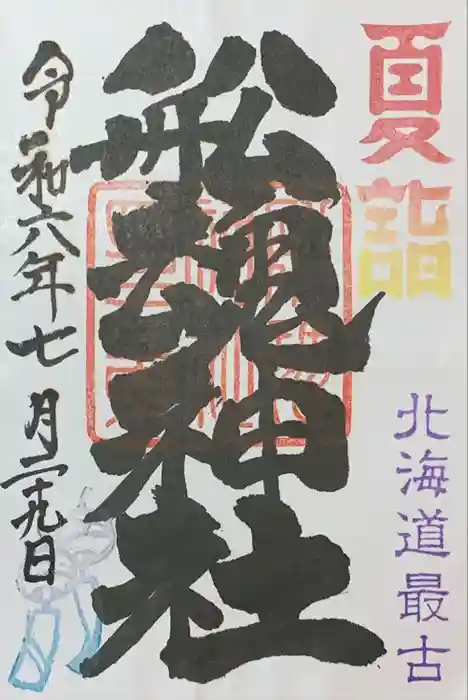 夏詣
北海道最古
船魂神社
令和六年七月二十九日